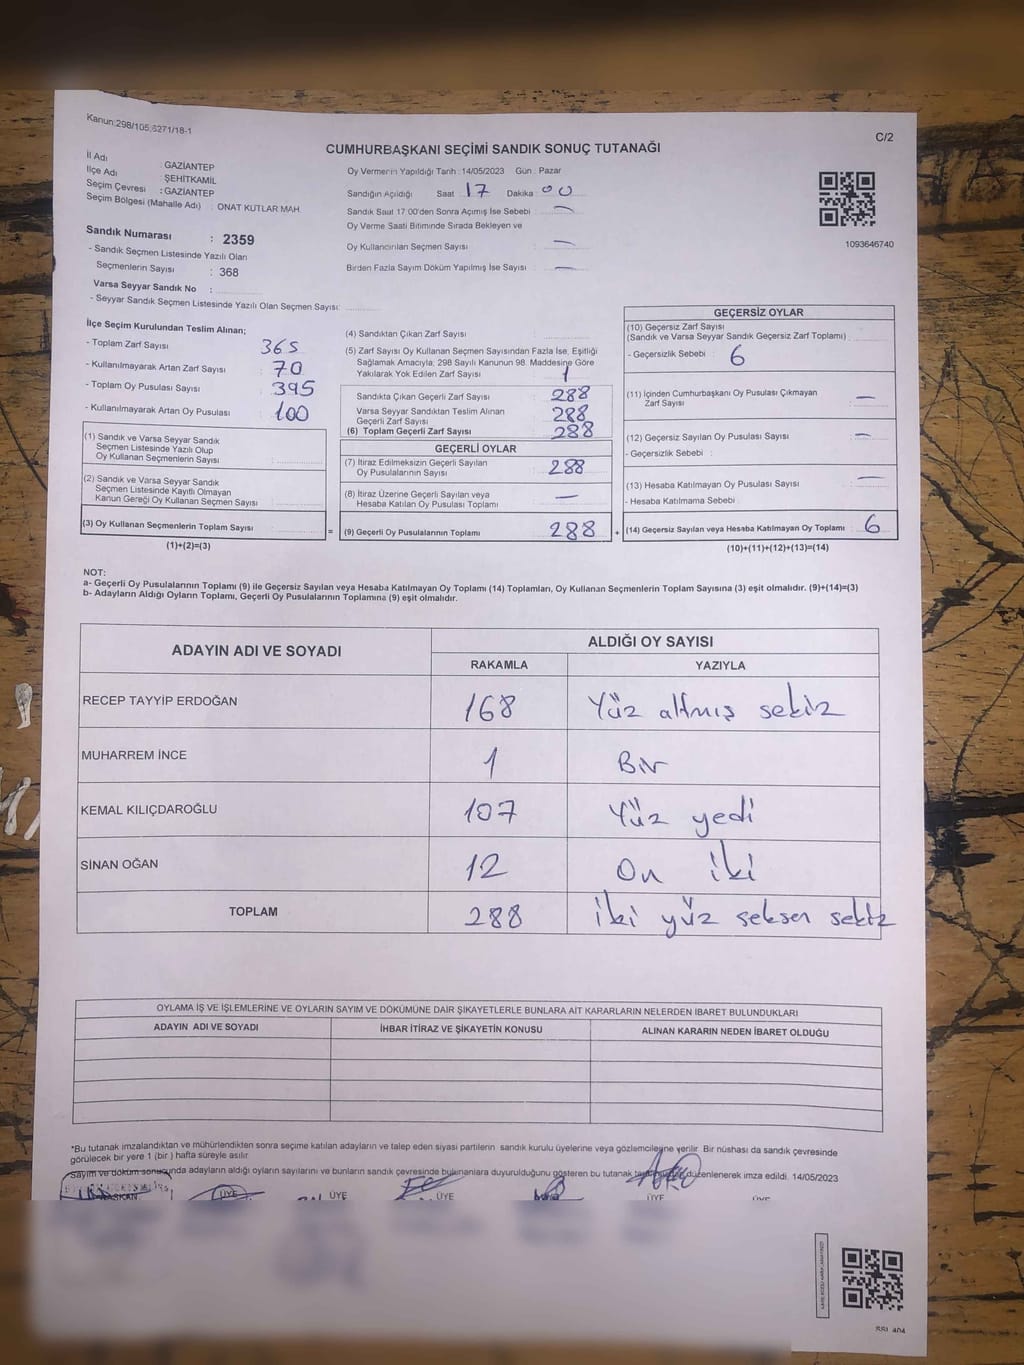 Kanun:298/105,6271/18-1
C/2
CUMHURBAŞKANI SEÇİMİ SANDIK SONUÇ TUTANAĞI
İl Adı : GAZİANTEP
İlçe Adı : ŞEHİTKAMİL
Seçim Çevresi : GAZİANTEP
Seçim Bölgesi (Mahalle Adı) : ONAT KUTLAR MAH.
Sandık Numarası : 2359
- Sandık Seçmen Listesinde Yazılı Olan
Seçmenlerin Sayısı : 368
Varsa Seyyar Sandık No :
- Seyyar Sandık Seçmen Listesinde Yazılı Olan Seçmen Sayısı:
Oy Vermenin Yapıldığı Tarih : 14/05/2023 Gün : Pazar
Sandığın Açıldığı Saat 17 Dakika 00
Sandık Saat 17:00'den Sonra Açımış İse Sebebi : —
Oy Verme Saati Bitiminde Sırada Bekleyen ve
Oy Kullandırılan Seçmen Sayısı : —
Birden Fazla Sayım Döküm Yapılmış İse Sayısı : —
1093646740
İlçe Seçim Kurulundan Teslim Alınan;
- Toplam Zarf Sayısı : 365
- Kullanılmayarak Artan Zarf Sayısı : 70
- Toplam Oy Pusulası Sayısı : 395
- Kullanılmayarak Artan Oy Pusulası : 100
(1) Sandık ve Varsa Seyyar Sandık
Seçmen Listesinde Yazılı Olup
Oy Kullanan Seçmenlerin Sayısı :
(2) Sandık ve Varsa Seyyar Sandık
Seçmen Listesinde Kayıtlı Olmayan
Kanun Gereği Oy Kullanan Seçmen Sayısı :
(3) Oy Kullanan Seçmenlerin Toplam Sayısı :
(1)+(2)=(3)
=
(4) Sandıktan Çıkan Zarf Sayısı :
(5) Zarf Sayısı Oy Kullanan Seçmen Sayısından Fazla İse, Eşitliği
Sağlamak Amacıyla, 298 Sayılı Kanunun 98. Maddesine Göre
Yakılarak Yok Edilen Zarf Sayısı : 1
Sandıkta Çıkan Geçerli Zarf Sayısı : 288
Varsa Seyyar Sandıktan Teslim Alınan
Geçerli Zarf Sayısı : 288
(6) Toplam Geçerli Zarf Sayısı : 288
GEÇERLİ OYLAR
(7) İtiraz Edilmeksizin Geçerli Sayılan
Oy Pusulalarının Sayısı : 288
(8) İtiraz Üzerine Geçerli Sayılan veya
Hesaba Katılan Oy Pusulası Toplamı : —
(9) Geçerli Oy Pusulalarının Toplamı : 288
+
GEÇERSİZ OYLAR
(10) Geçersiz Zarf Sayısı
(Sandık ve Varsa Seyyar Sandık Geçersiz Zarf Toplamı)
- Geçersizlik Sebebi : 6
(11) İçinden Cumhurbaşkanı Oy Pusulası Çıkmayan
Zarf Sayısı : —
(12) Geçersiz Sayılan Oy Pusulası Sayısı : —
- Geçersizlik Sebebi :
(13) Hesaba Katılmayan Oy Pusulası Sayısı : —
- Hesaba Katılmama Sebebi :
(14) Geçersiz Sayılan veya Hesaba Katılmayan Oy Toplamı : 6
(10)+(11)+(12)+(13)=(14)
NOT:
a- Geçerli Oy Pusulalarının Toplamı (9) ile Geçersiz Sayılan veya Hesaba Katılmayan Oy Toplamı (14) Toplamları, Oy Kullanan Seçmenlerin Toplam Sayısına (3) eşit olmalıdır. (9)+(14)=(3)
b- Adayların Aldığı Oyların Toplamı, Geçerli Oy Pusulalarının Toplamına (9) eşit olmalıdır.
ADAYIN ADI VE SOYADI
ALDIĞI OY SAYISI
RAKAMLA YAZIYLA
RECEP TAYYİP ERDOĞAN 168 Yüz altmış sekiz
MUHARREM İNCE 1 Bir
KEMAL KILIÇDAROĞLU 107 Yüz yedi
SİNAN OĞAN 12 On iki
TOPLAM 288 iki yüz seksen sekiz
OYLAMA İŞ VE İŞLEMLERİNE VE OYLARIN SAYIM VE DÖKÜMÜNE DAİR ŞİKAYETLERLE BUNLARA AİT KARARLARIN NELERDEN İBARET BULUNDUKLARI
ADAYIN ADI VE SOYADI İHBAR İTİRAZ VE ŞİKAYETİN KONUSU ALINAN KARARIN NEDEN İBARET OLDUĞU
*Bu tutanak imzalandıktan ve mühürlendikten sonra seçime katılan adayların ve talep eden siyasi partilerin sandık kurulu üyelerine veya gözlemcilerine verilir. Bir nüshası da sandık çevresinde
görülecek bir yere 1 (bir ) hafta süreyle asılır.
Sayım ve döküm sonucunda adayların aldığı oyların sayılarını ve bunların sandık çevresinde bulunanlara duyurulduğunu gösteren bu tutanak düzenlenerek imza edildi. 14/05/2023
BAŞKAN ÜYE ÜYE ÜYE ÜYE ÜYE